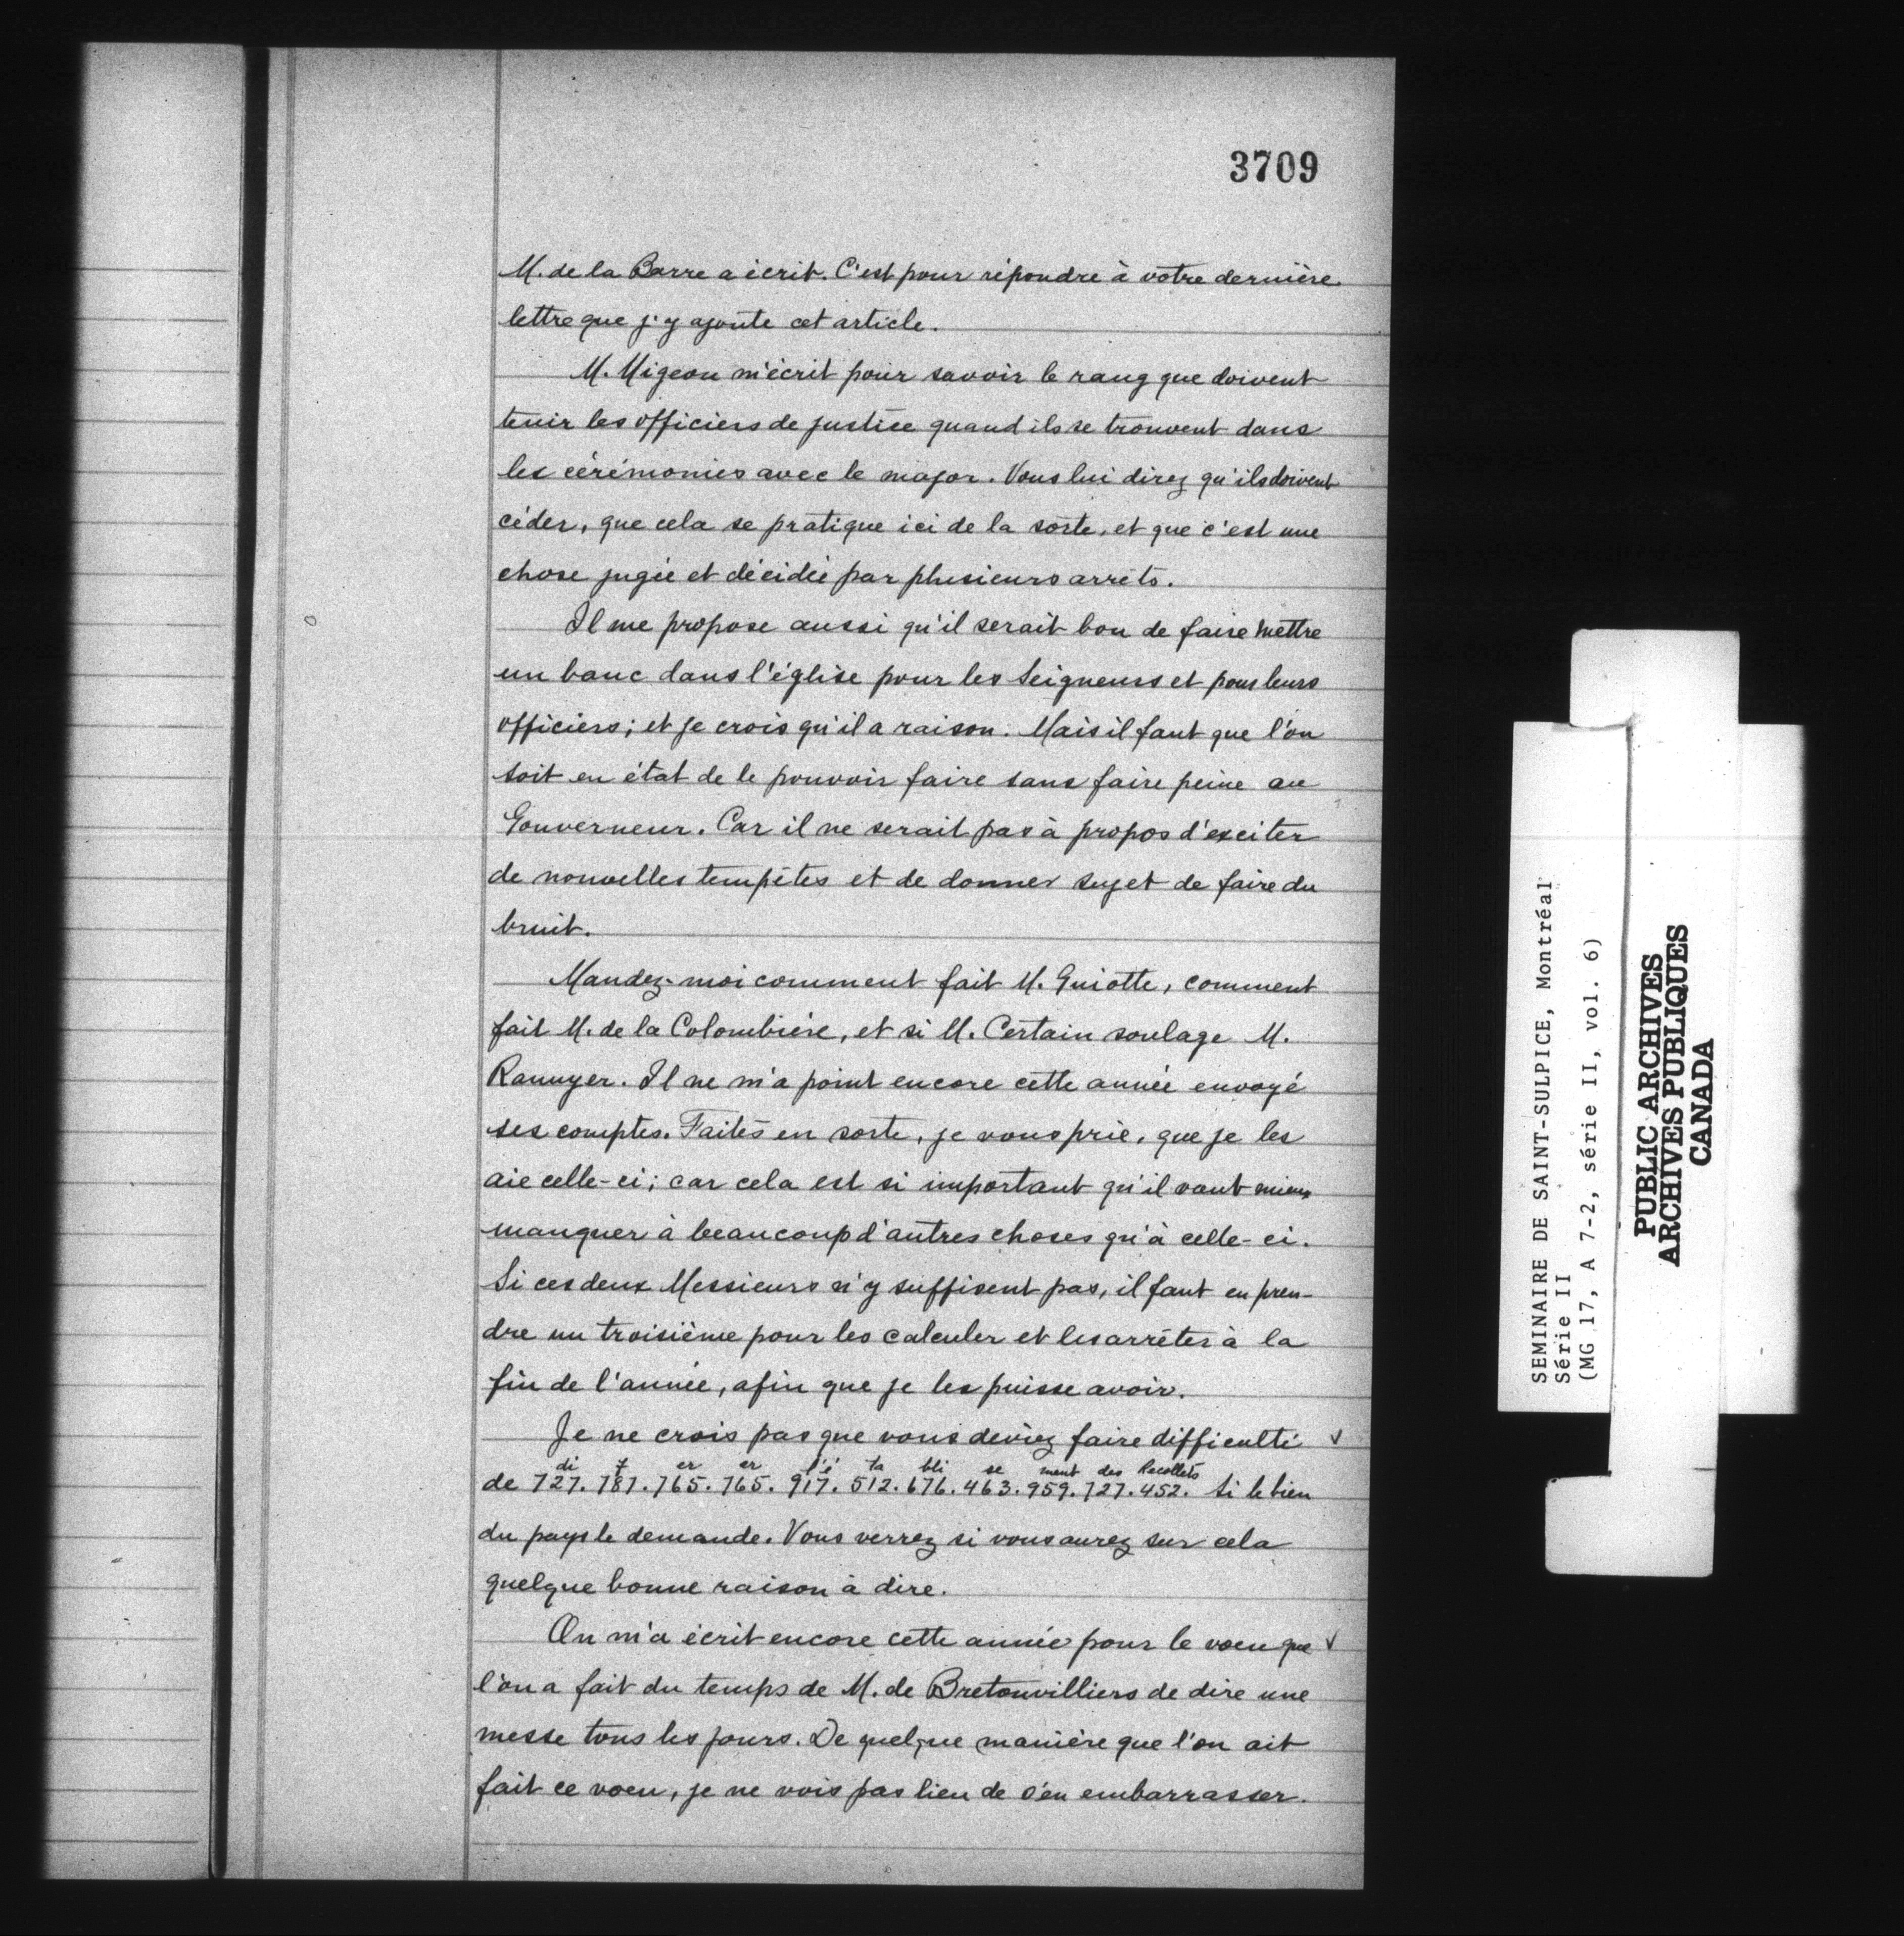 3709
M. de la Barre a écrit. C'est pour répondre à votre dernière
lettre que j'y ajoute cet article.
M. Migeon m'écrit pour savoir le rang que doivent
tenir les officiers de justice quand ils se trouvent dans
les cérémonies avec le major. Vous lui direz qu'ils doivent
céder, que cela se pratique ici de la sorte, et que c'est une
chose jugée et décidée par plusieurs arrêts.
Il me propose aussi qu'il serait bon de faire mettre
un banc dans l'église pour les Seigneurs et pour leurs
officiers; et je crois qu'il a raison. Mais il faut que l'on
soit en état de le pouvoir faire sans faire peine au
Gouverneur. Car il ne serait pas à propos d'exciter
de nouvelles tempêtes et de donner sujet de faire du
bruit.
Mandez-moi comment fait M. Guiotte, comment
fait M. de la Colombière, et si M. Certain soulage M.
Rannyer. Il ne m'a point encore cette année envoyé
ses comptes. Faites en sorte, je vous prie, que je les
aie celle-ci; car cela est si important qu'il vaut mieux
manquer à beaucoup d'autres choses qu'à celle-ci.
Si ces deux Messieurs n'y suffisent pas, il faut en pren-
dre un troisième pour les calculer et les arrêter à la
fin de l'année, afin que je les puisse avoir.
Je ne crois pas que vous deviez faire difficulté √
di f er er l'é ta bli se ment des Recollets
de 727. 787. 765. 765. 917. 512. 676. 463. 959. 727. 452. Si le bien
du pays le demande. Vous verrez si vous aurez sur cela
quelque bonne raison à dire.
On m'a écrit encore cette année pour le voeu que √
l'on a fait du temps de M. de Bretonvilliers de dire une
messe tous les jours. De quelque manière que l'on ait
fait ce voeu, je ne vois pas lieu de s'en embarrasser.
SEMINAIRE DE SAINT-SULPICE, Montréal
Série II
(MG 17, A 7-2, série II, vol. 6)
PUBLIC ARCHIVES
ARCHIVES PUBLIQUES
CANADA